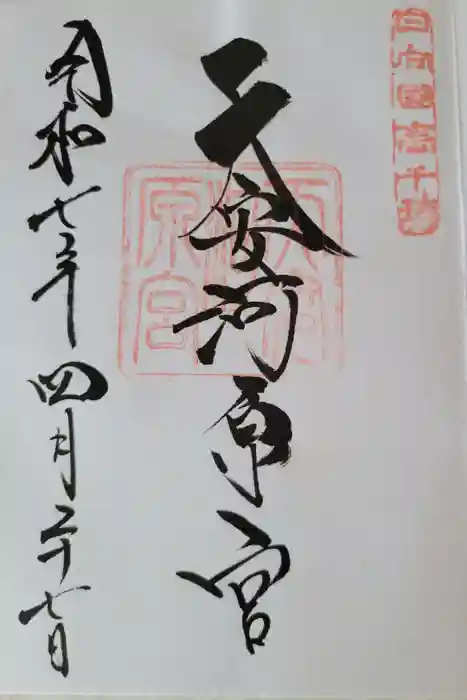 日向国高千穂
天安河原宮
令和七年四月二十七日